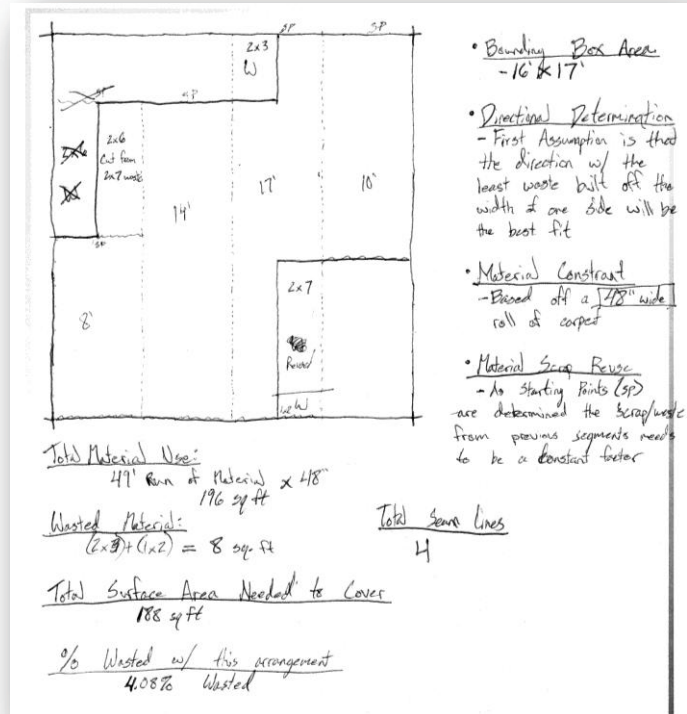 SP
SP
2x3
W
SP
SP
2x6
Cut from
2x7 waste
14'
17'
10'
SP
8'
2x7
Reused
1x2 W
• Bounding Box Area
- 16' x 17'
• Directional Determination
- First Assumption is that
the direction w/ the
least waste built off the
width of one side will be
the best fit
• Material Constraint
- Based off a 48" wide
roll of carpet
• Material Scrap Reuse
- As Starting Points (SP)
are determined the scrap/waste
from previous segments needs
to be a constant factor
Total Material Use:
49' Run of Material x 48"
196 sq ft
Wasted Material:
(2x3)+(1x2) = 8 sq. ft
Total Seam Lines
4
Total Surface Area Needed to Cover
188 sq ft
% Wasted w/ this arrangement
4.08% Wasted